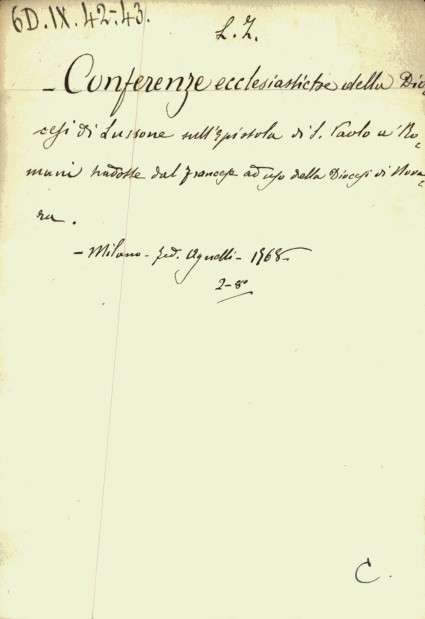 6D.IX.42-43.
L. Z.
- Conferenze ecclesiastiche della Dio,
cesi di Lussone sull'Epistola di S. Paolo a' Ro,
mani tradotte dal francese ad uso della Diocesi di Nova,
ra.
- Milano - Fed. Agnelli - 1768 -
2-8º
C.